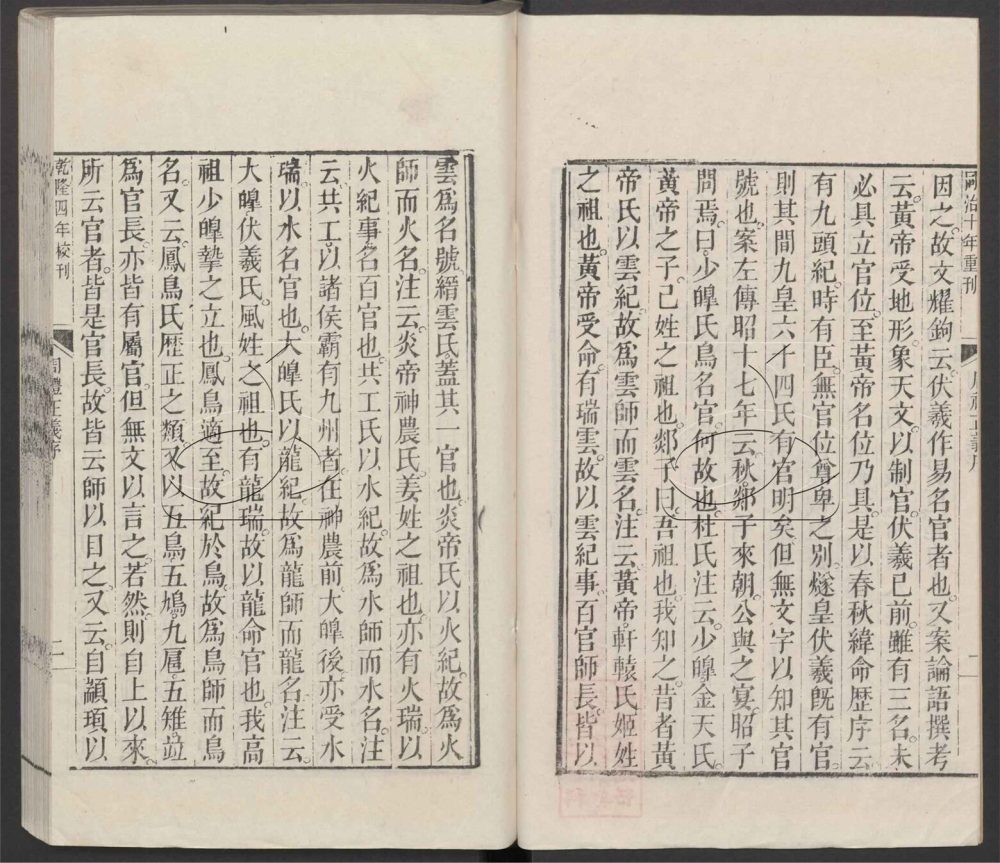 同治十年重刊
因之故文耀鉤云伏羲作易名官者也又案論語撰考
云黃帝受地形象天文以制官伏羲已前雖有三名未
必具立官位至黃帝名位乃具是以春秋緯命歷序云
有九頭紀時有臣無官位尊卑之別燧皇伏羲旣有官
則其間九皇六十四氏有官明矣但無文字以知其官
號也案左傳昭十七年云秋郯子來朝公與之宴昭子
問焉曰少皥氏鳥名官何故也杜氏注云少皥金天氏
黃帝之子己姓之祖也郯子曰吾祖也我知之昔者黃
帝氏以雲紀故爲雲師而雲名注云黃帝軒轅氏姬姓
之祖也黃帝受命有瑞雲故以雲紀事百官師長皆以
雲爲名號縉雲氏蓋其一官也炎帝氏以火紀故爲火
師而火名注云炎帝神農氏姜姓之祖也亦有火瑞以
火紀事名百官也共工氏以水紀故爲水師而水名注
云共工以諸侯霸有九州者在神農前大皥後亦受水
瑞以水名官也大皥氏以龍紀故爲龍師而龍名注云
大皥伏羲氏風姓之祖也有龍瑞故以龍命官也我高
祖少皥摯之立也鳳鳥適至故紀於鳥故爲鳥師而鳥
名又云鳳鳥氏歷正之類又以五鳥五鳩九扈五雉竝
爲官長亦皆有屬官但無文以言之若然則自上以來
所云官者皆是官長故皆云師以目之又云自顓頊以
乾隆四年校刊
周禮正義序
二